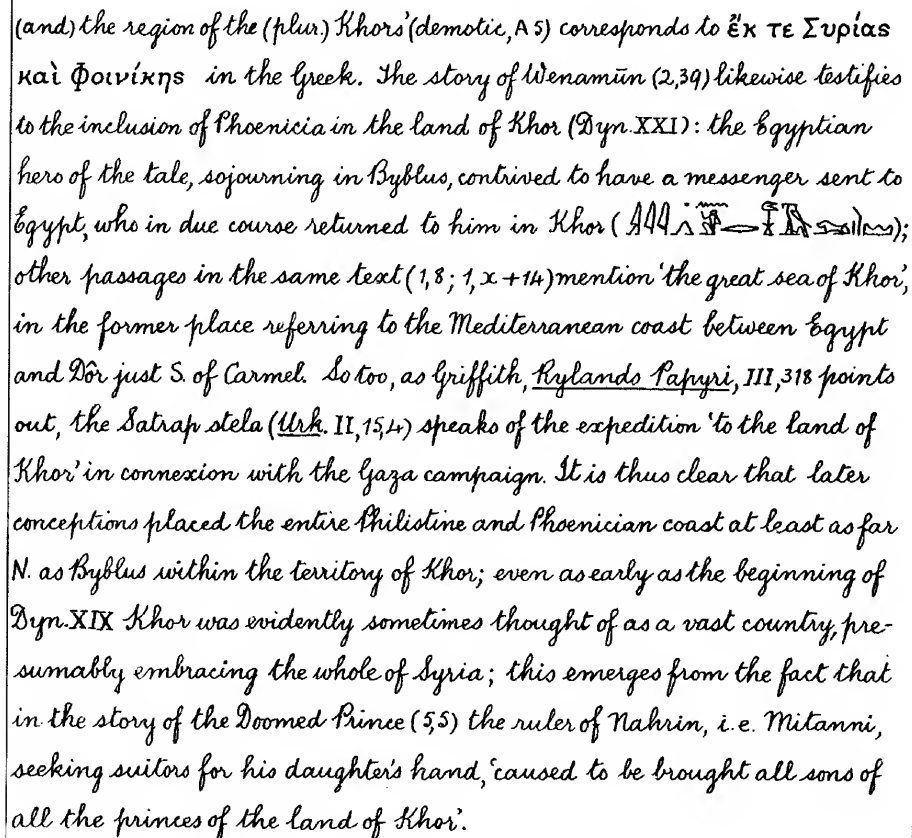 (and) the region of the (plur.) Khors' (demotic, A 5) corresponds to ἔκ τε Συρίας
καὶ Φοινίκης in the Greek. The story of Wenamūn (2,39) likewise testifies
to the inclusion of Phoenicia in the land of Khor (Dyn. XXI): the Egyptian
hero of the tale, sojourning in Byblus, contrived to have a messenger sent to
Egypt, who in due course returned to him in Khor ( );
other passages in the same text (1,8; 1, x + 14) mention 'the great sea of Khor',
in the former place referring to the Mediterranean coast between Egypt
and Dôr just S. of Carmel. So too, as Griffith, Rylands Papyri, III, 318 points
out, the Satrap stela (Urk. II, 15,4) speaks of the expedition 'to the land of
Khor' in connexion with the Gaza campaign. It is thus clear that later
conceptions placed the entire Philistine and Phoenician coast at least as far
N. as Byblus within the territory of Khor; even as early as the beginning of
Dyn. XIX Khor was evidently sometimes thought of as a vast country, pre-
sumably embracing the whole of Syria; this emerges from the fact that
in the story of the Doomed Prince (5,5) the ruler of Nahrin, i.e. Mitanni,
seeking suitors for his daughter's hand, 'caused to be brought all sons of
all the princes of the land of Khor'.